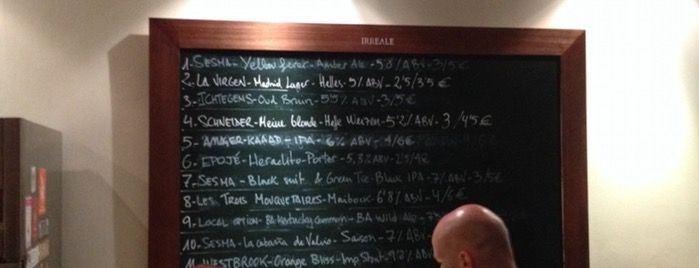 IRREALE
1- SESMA - Yellow fever - Amber Ale - 5'8% ABV - 3/5€
2- LA VIRGEN - Madrid Lager - Helles - 5% ABV - 2'5/3'5€
3- ICHTEGEMS - Oud Bruin - 5'5% ABV - 3/5€
4- SCHNEIDER - Meine blonde - Hefe Weizen - 5'2% ABV - 3/4'5€
5- AMAGER - KAAAD - IPA - 6% ABV - 4/6€
6- EPOJÉ - Heraclito - Porter - 5,3% ABV -
7- SESMA - Black suit & Green Tie - Black IPA - 7% ABV - 3/5€
8- LES TROIS MOUSQUETAIRES - Maibock - 6'8% ABV - 4/6€
9- LOCAL OPTION - BA Kentucky Common - BA Wild Ale -
10- SESMA - La cabaña de Valvio - Saison - 7% ABV
11- WESTBROOK - Orange Bliss - Imp. Stout - 9'2% ABV